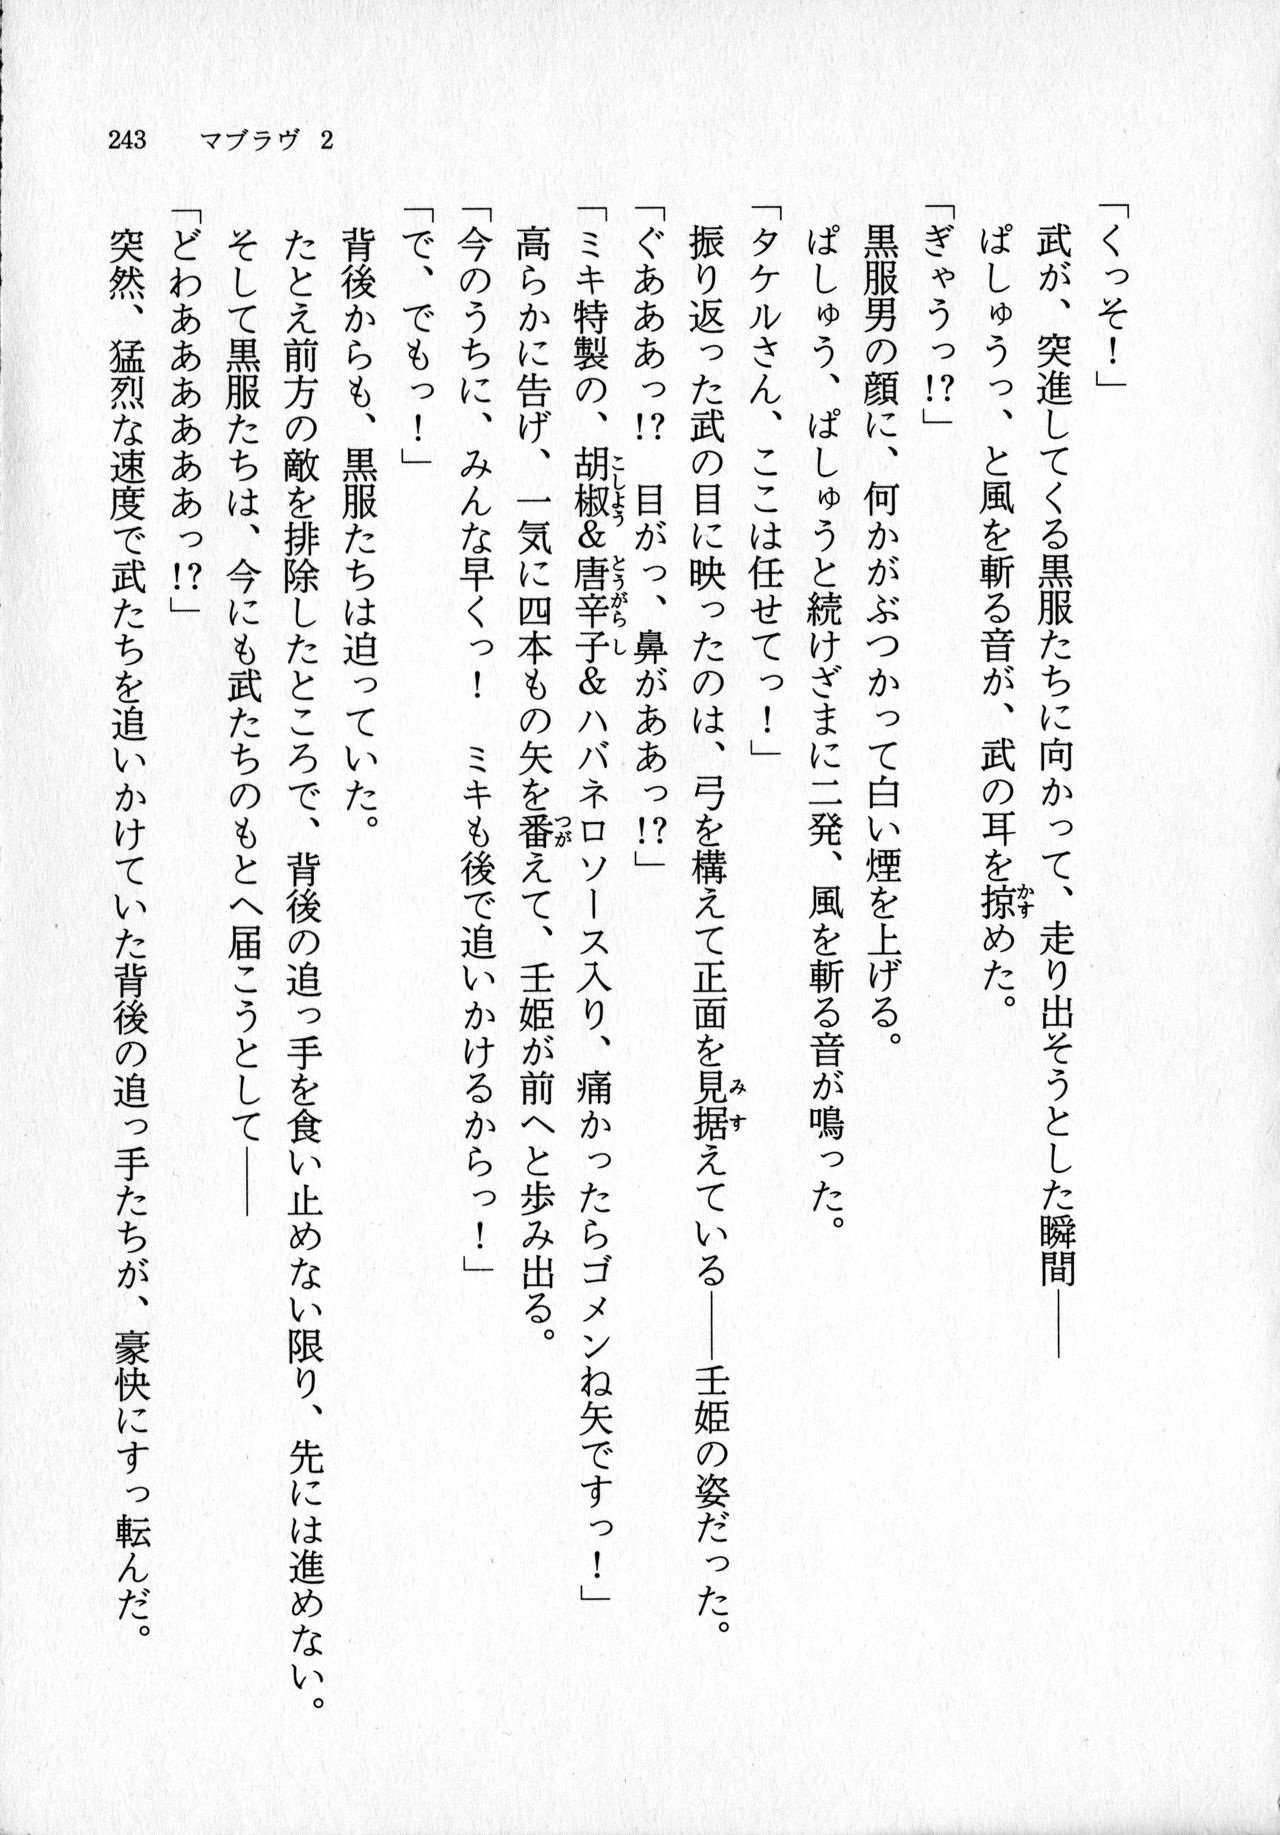 243　マブラヴ 2
「くっそ！」
　武が、突進してくる黒服たちに向かって、走り出そうとした瞬間――
　ぱしゅうっ、と風を斬る音が、武の耳を掠めた。
「ぎゃうっ!?」
　黒服男の顔に、何かがぶつかって白い煙を上げる。
　ぱしゅう、ぱしゅうと続けざまに二発、風を斬る音が鳴った。
「タケルさん、ここは任せてっ！」
　振り返った武の目に映ったのは、弓を構えて正面を見据えている――壬姫の姿だった。
「ぐあああっ!?　目がっ、鼻がああっ!?」
「ミキ特製の、胡椒＆唐辛子＆ハバネロソース入り、痛かったらゴメンね矢ですっ！」
　高らかに告げ、一気に四本もの矢を番えて、壬姫が前へと歩み出る。
「今のうちに、みんな早くっ！　ミキも後で追いかけるからっ！」
「で、でもっ！」
　背後からも、黒服たちは迫っていた。
　たとえ前方の敵を排除したところで、背後の追っ手を食い止めない限り、先には進めない。
　そして黒服たちは、今にも武たちのもとへ届こうとして――
「どわああああああっ!?」
　突然、猛烈な速度で武たちを追いかけていた背後の追っ手たちが、豪快にすっ転んだ。